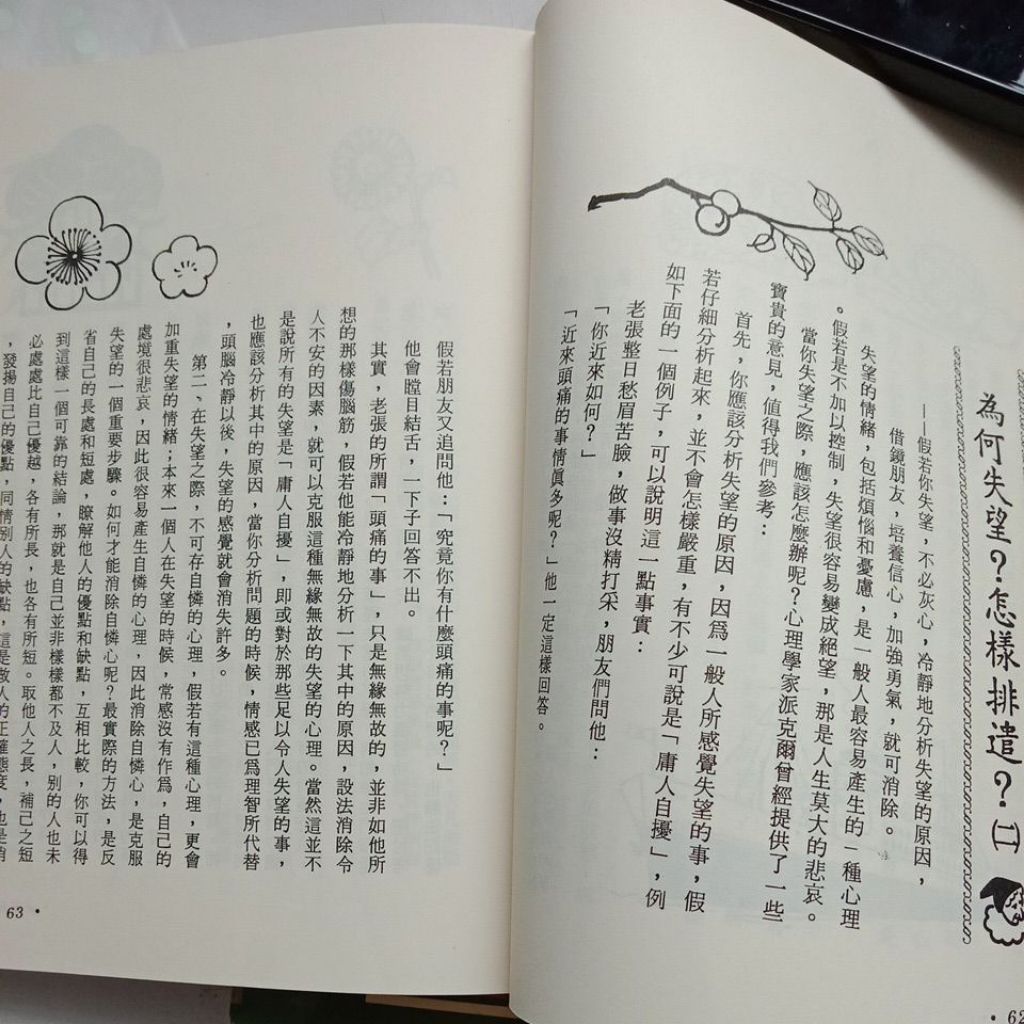 為何失望？怎樣排遣？(二)
——假若你失望，不必灰心，冷靜地分析失望的原因，
借鏡朋友，培養信心，加強勇氣，就可消除。
失望的情緒，包括煩惱和憂慮，是一般人最容易產生的一種心理
。假若是不加以控制，失望很容易變成絕望，那是人生莫大的悲哀。
當你失望之際，應該怎麼辦呢？心理學家派克爾曾經提供了一些
寶貴的意見，值得我們參考：
首先，你應該分析失望的原因，因爲一般人所感覺失望的事，假
若仔細分析起來，並不會怎樣嚴重，有不少可說是「庸人自擾」，例
如下面的一個例子，可以說明這一點事實：
老張整日愁眉苦臉，做事沒精打采，朋友們問他：
「你近來如何？」
「近來頭痛的事情眞多呢？」他一定這樣回答。
62
假若朋友又追問他：「究竟你有什麼頭痛的事呢？」
他會瞠目結舌，一下子回答不出。
其實，老張的所謂「頭痛的事」，只是無緣無故的，並非如他所
想的那樣傷腦筋，假若他能冷靜地分析一下其中的原因，設法消除令
人不安的因素，就可以克服這種無緣無故的失望的心理。當然這並不
是說所有的失望是「庸人自擾」，即或對於那些足以令人失望的事，
也應該分析其中的原因，當你分析問題的時候，情感已爲理智所代替
，頭腦冷靜以後，失望的感覺就會消失許多。
第二、在失望之際，不可存自憐的心理，假若有這種心理，更會
加重失望的情緒；本來一個人在失望的時候，常感沒有作爲，自己的
處境很悲哀，因此很容易產生自憐的心理，因此消除自憐心，是克服
失望的一個重要步驟。如何才能消除自憐心呢？最實際的方法，是反
省自己的長處和短處，瞭解他人的優點和缺點，互相比較，你可以得
到這樣一個可靠的結論，那就是自己並非樣樣都不及人，別的人也未
必處處比自己優越，各有所長，也各有所短。取他人之長，補己之短
，發揚自己的優點，同情別人的缺點，這是做人的正確態度，也是消
63